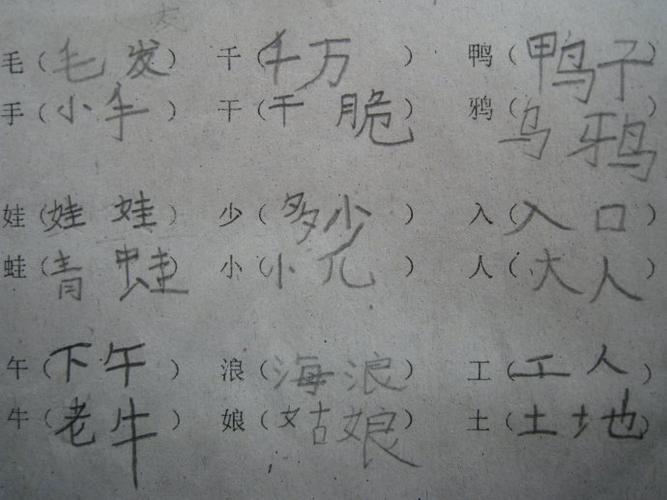 毛（毛发） 千（千万） 鸭（鸭子）
手（小手） 干（干脆） 鸦（乌鸦）
娃（娃娃） 少（多少） 入（入口）
蛙（青蛙） 小（小儿） 人（大人）
午（下午） 浪（海浪） 工（工人）
牛（老牛） 娘（姑娘） 土（土地）